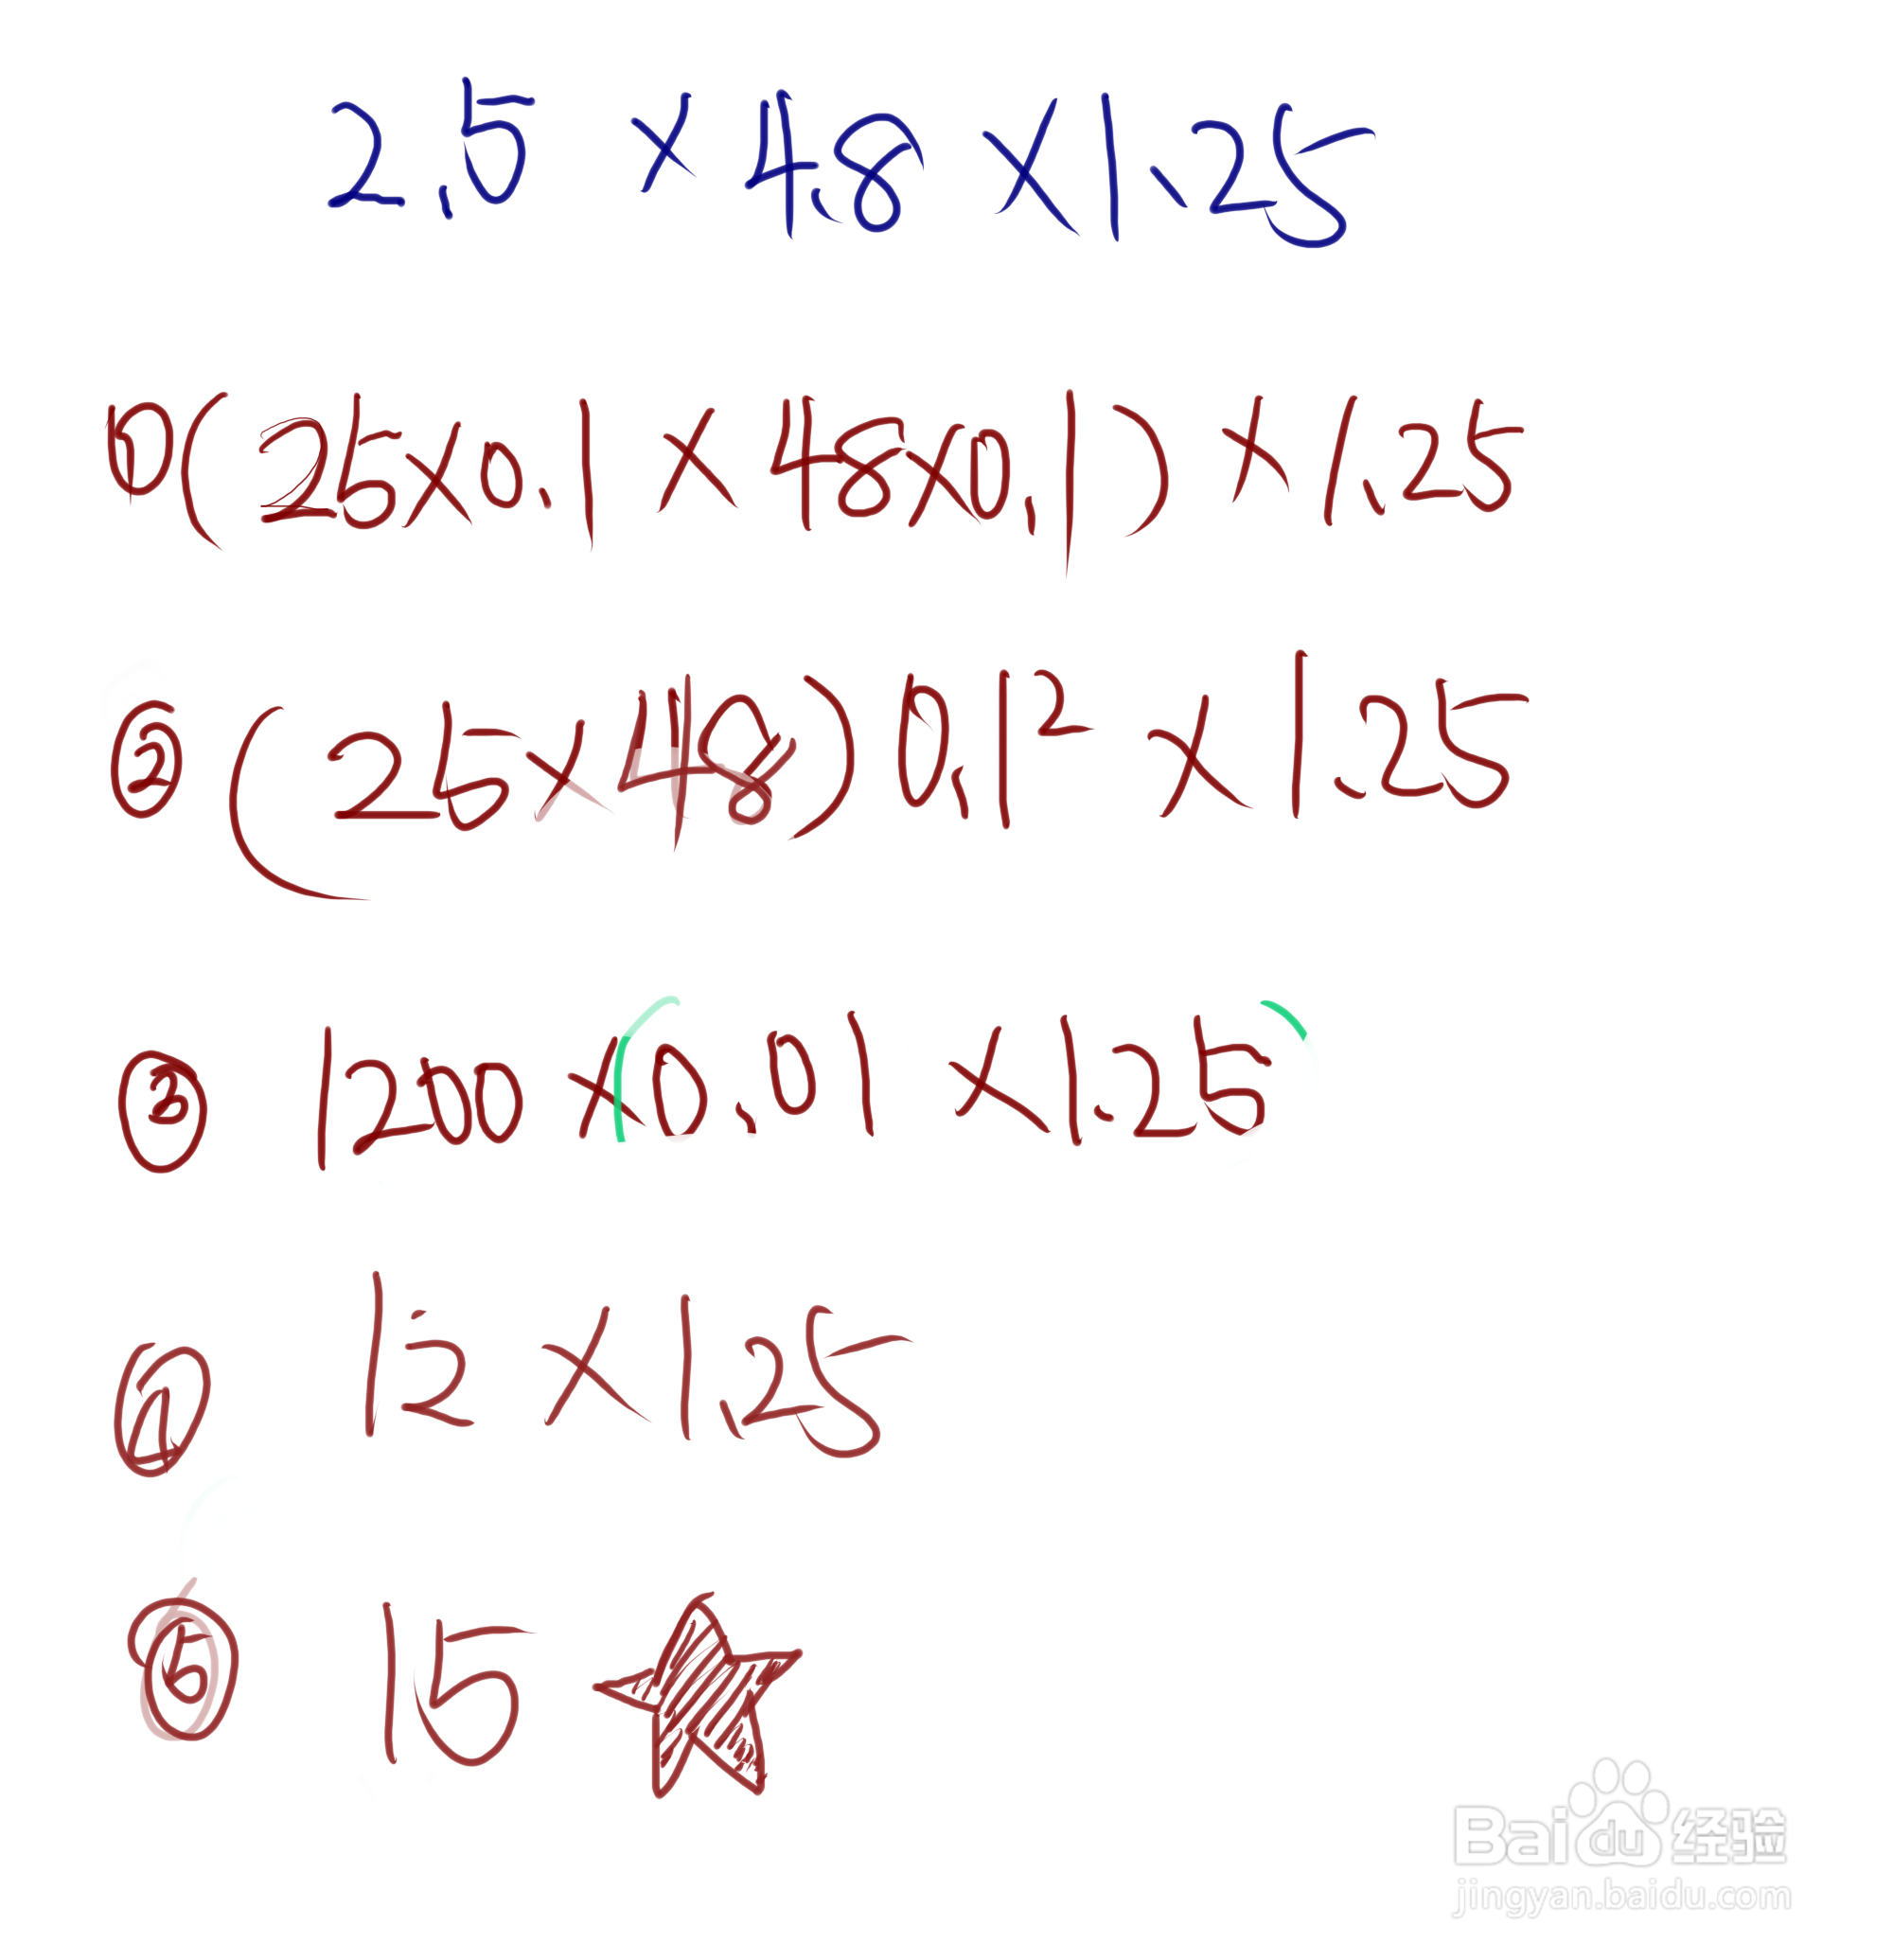 2.5 × 4.8 × 1.25
①(25×0.1 × 48×0.1) × 1.25
② (25×48) 0.1² × 1.25
③ 1200 ×(0.01 × 1.25)
④ 12 × 1.25
⑤ 15
Baidu 经验
jingyan.baidu.com